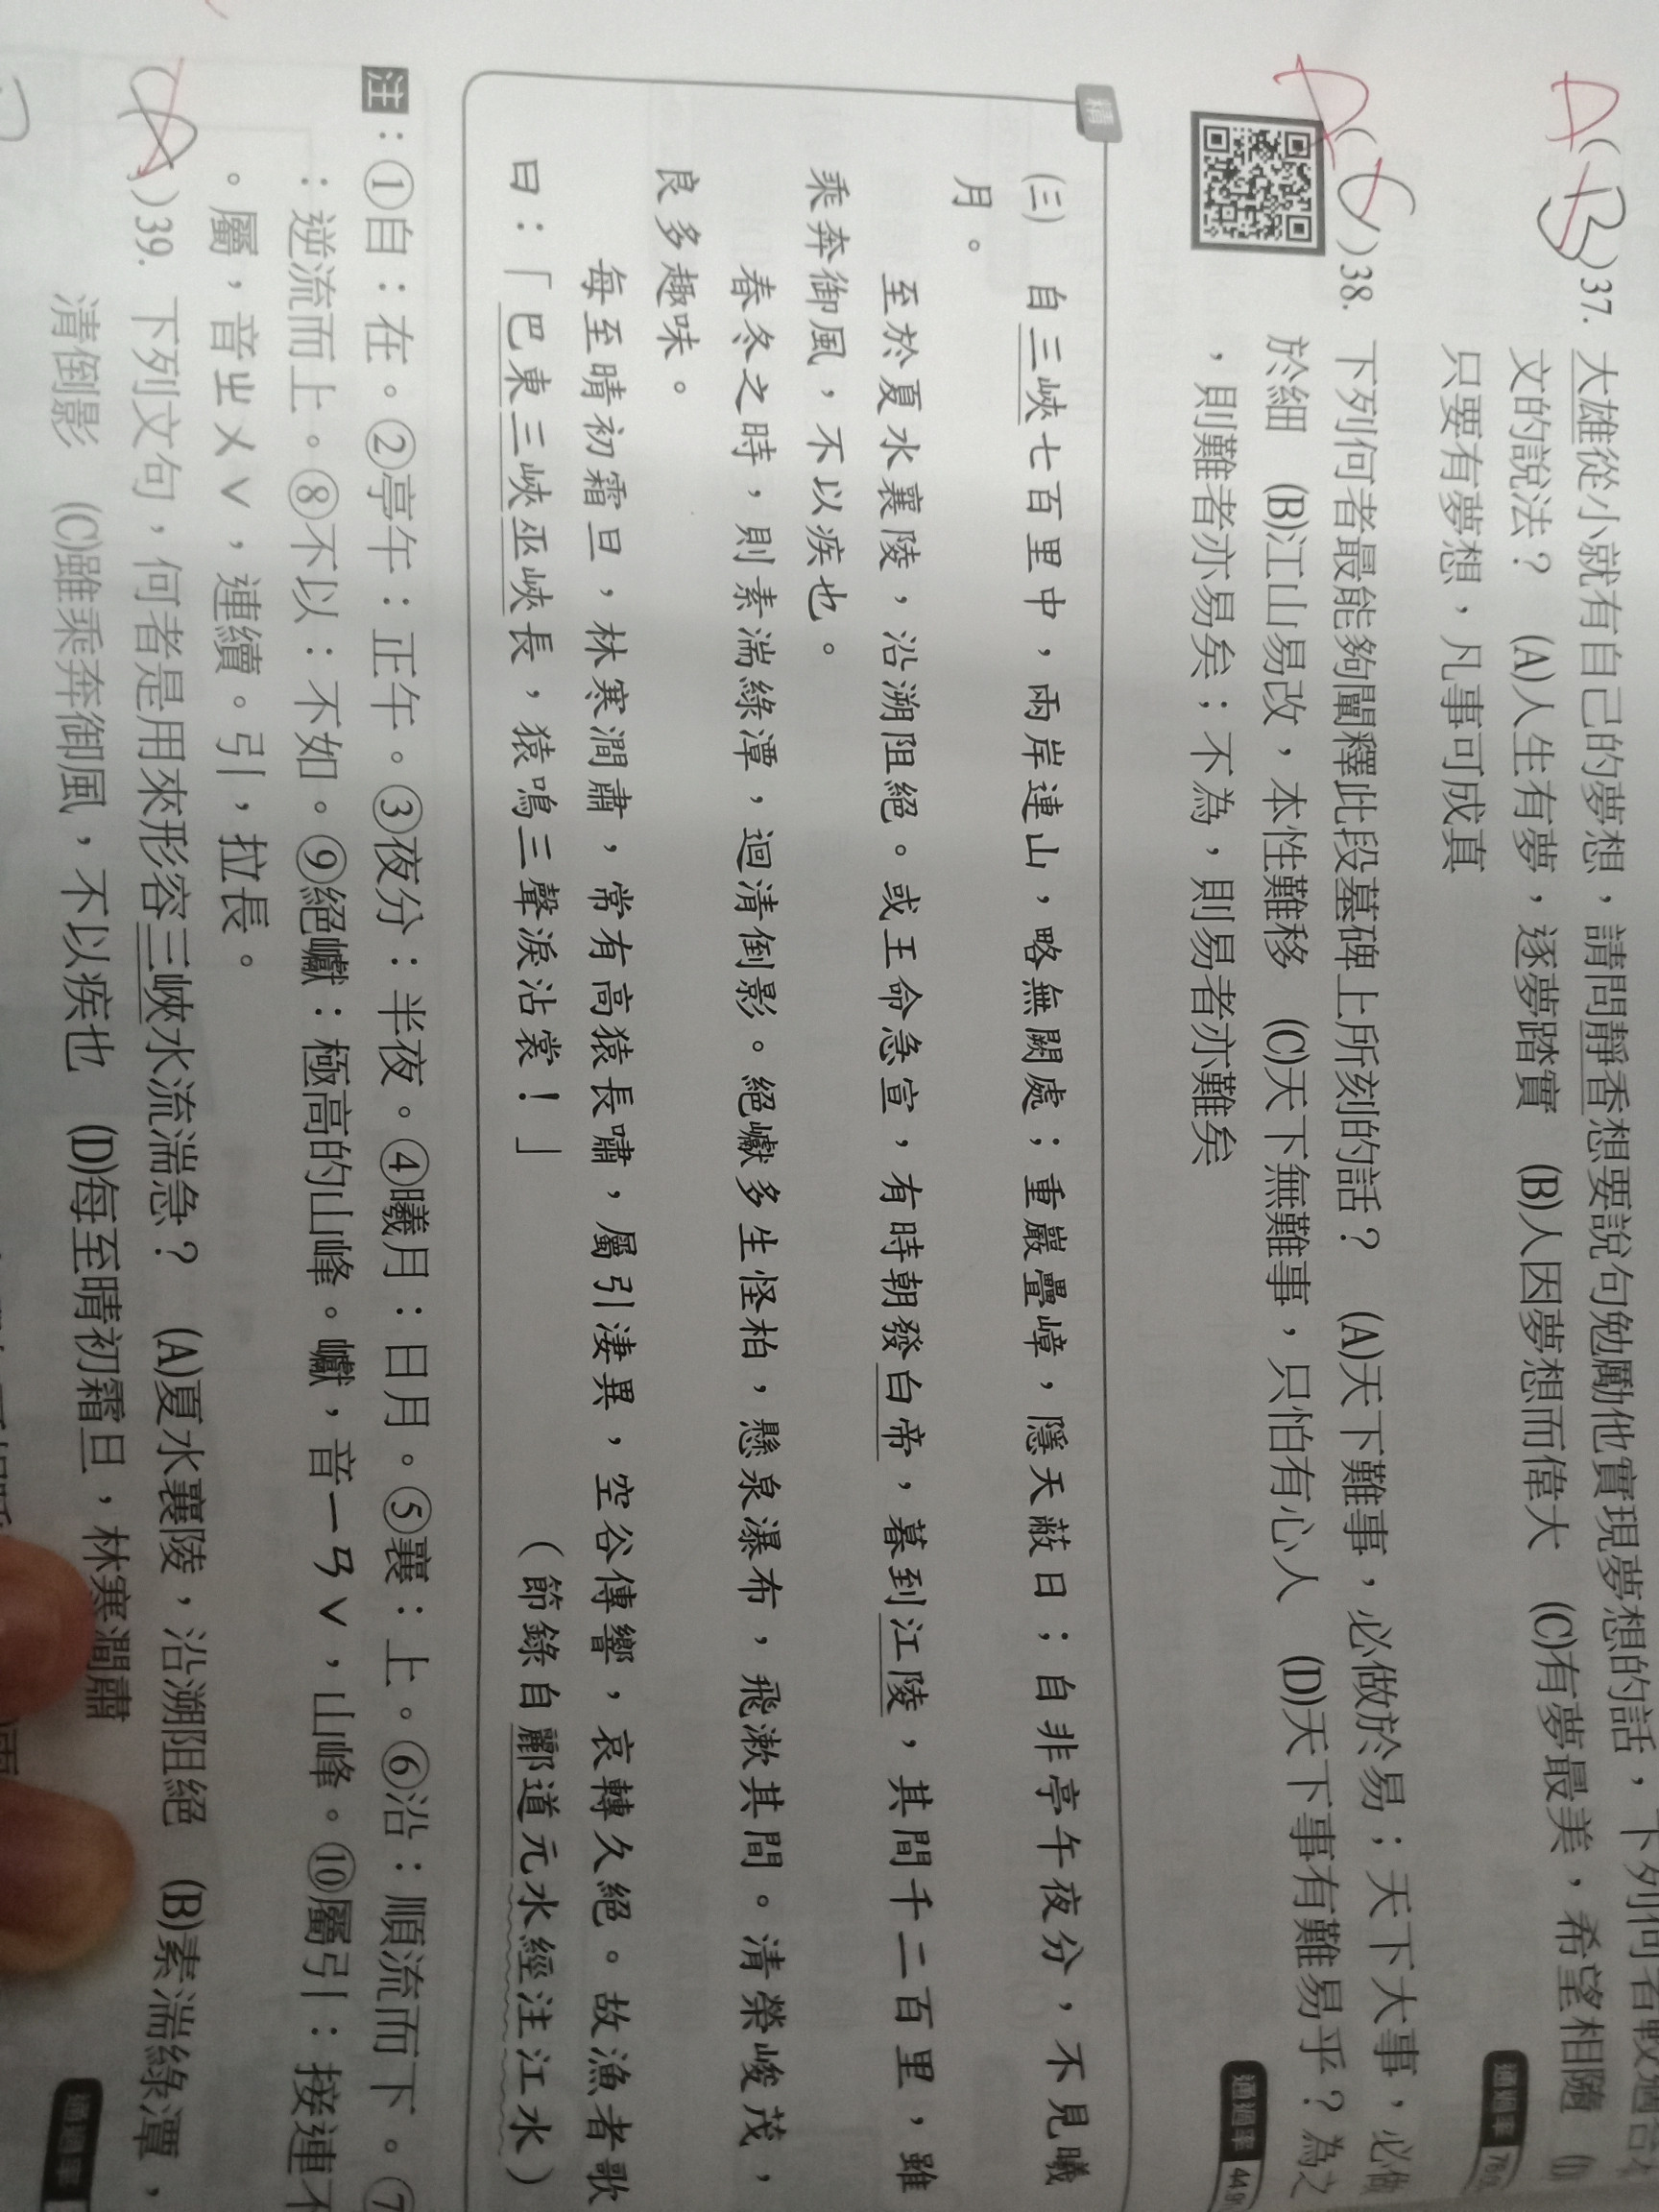 )37. 大雄從小就有自己的夢想，請問靜香想要說句勉勵他實現夢想的話，下列何者較適合
文的說法？ (A)人生有夢，逐夢踏實 (B)人因夢想而偉大 (C)有夢最美，希望相隨
只要有夢想，凡事可成真
通過率 78%
)38. 下列何者最能夠闡釋此段墓碑上所刻的話？ (A)天下難事，必做於易；天下大事，必做
於細 (B)江山易改，本性難移 (C)天下無難事，只怕有心人 (D)天下事有難易乎？為之
，則難者亦易矣；不為，則易者亦難矣
通過率 44%
精
(三) 自三峽七百里中，兩岸連山，略無闕處；重巖疊嶂，隱天蔽日；自非亭午夜分，不見曦
月。
至於夏水襄陵，沿溯阻絕。或王命急宣，有時朝發白帝，暮到江陵，其間千二百里，雖
乘奔御風，不以疾也。
春冬之時，則素湍綠潭，迴清倒影。絕巘多生怪柏，懸泉瀑布，飛漱其間。清榮峻茂，
良多趣味。
每至晴初霜旦，林寒澗肅，常有高猿長嘯，屬引淒異，空谷傳響，哀轉久絕。故漁者歌
曰：「巴東三峽巫峽長，猿鳴三聲淚沾裳！」 （節錄自酈道元水經注江水）
注：①自：在。②亭午：正午。③夜分：半夜。④曦月：日月。⑤襄：上。⑥沿：順流而下。⑦
：逆流而上。⑧不以：不如。⑨絕巘：極高的山峰。巘，音ㄧㄢˇ，山峰。⑩屬引：接連不
。屬，音ㄓㄨˇ，連續。引，拉長。
)39. 下列文句，何者是用來形容三峽水流湍急？ (A)夏水襄陵，沿溯阻絕 (B)素湍綠潭，
清倒影 (C)雖乘奔御風，不以疾也 (D)每至晴初霜旦，林寒澗肅
通過率